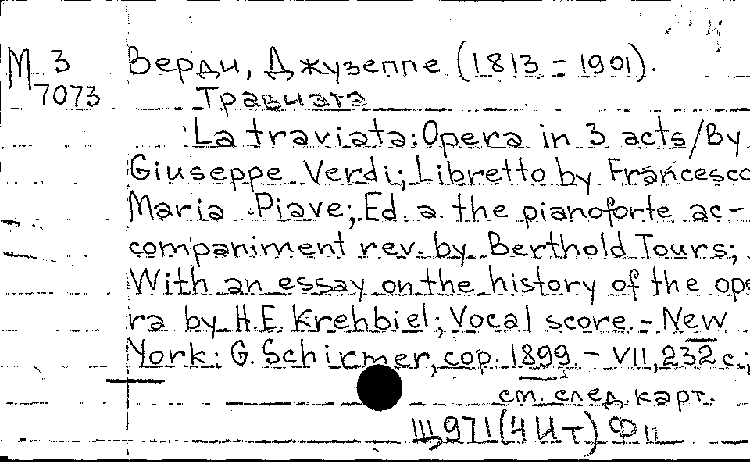 М 3
7073
Верди, Джузеппе (1813 - 1901).
Травиата
La traviata: Opera in 3 acts/By
Giuseppe Verdi; Libretto by Francesco
Maria Piave; Ed. a. the pianoforte ac-
companiment rev. by Berthold Tours;
With an essay on the history of the ope
ra by H.E. Krehbiel; Vocal score. - New
York: G. Schirmer, cop. 1899. - VII, 232 с.;
см. след. карт.
Щ971(4Ит)